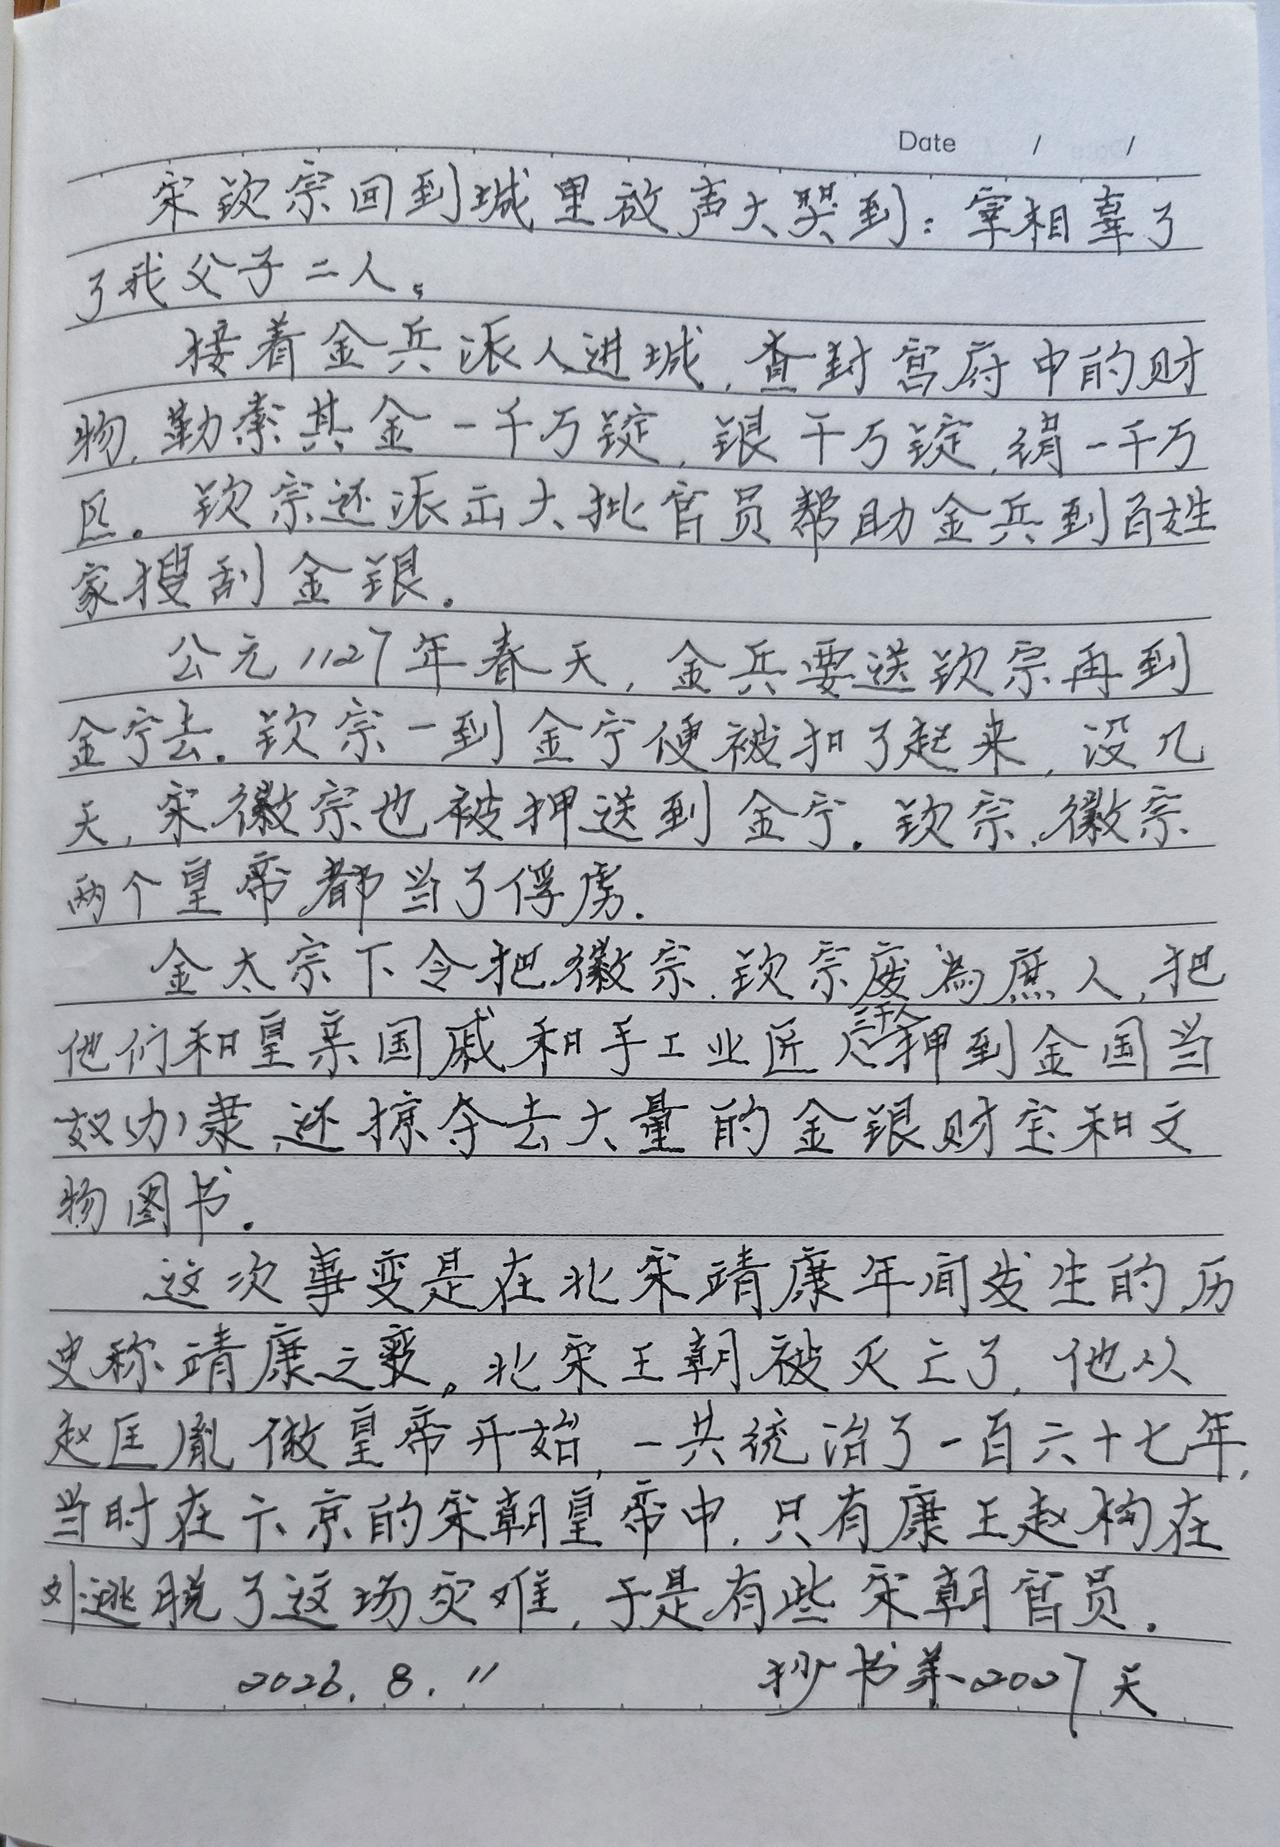 Date / /
宋钦宗回到城里放声大哭到：宰相辜了
了我父子二人。
接着金兵派人进城，查封宫府中的财
物，勒索其金一千万锭，银千万锭，绢一千万
匹。钦宗还派出大批官员帮助金兵到百姓
家搜刮金银。
公元1127年春天，金兵要送钦宗再到
金宁去。钦宗一到金宁便被扣了起来，没几
天，宋徽宗也被押送到金宁。钦宗、徽宗
两个皇帝都当了俘虏。
金太宗下令把徽宗、钦宗废為庶人，把
他们和皇亲国戚和手工业匠三千人押到金国当
奴隶，还掠夺去大量的金银财宝和文
物图书。
这次事变是在北宋靖康年间发生的，历
史称靖康之变。北宋王朝被灭亡了，他从
赵匡胤做皇帝开始，一共统治了一百六十七年，
当时在卞京的宋朝皇帝中，只有康王赵构在
外逃脱了这场灾难，于是有些宋朝官员。
2026.8.11 抄书第2027天